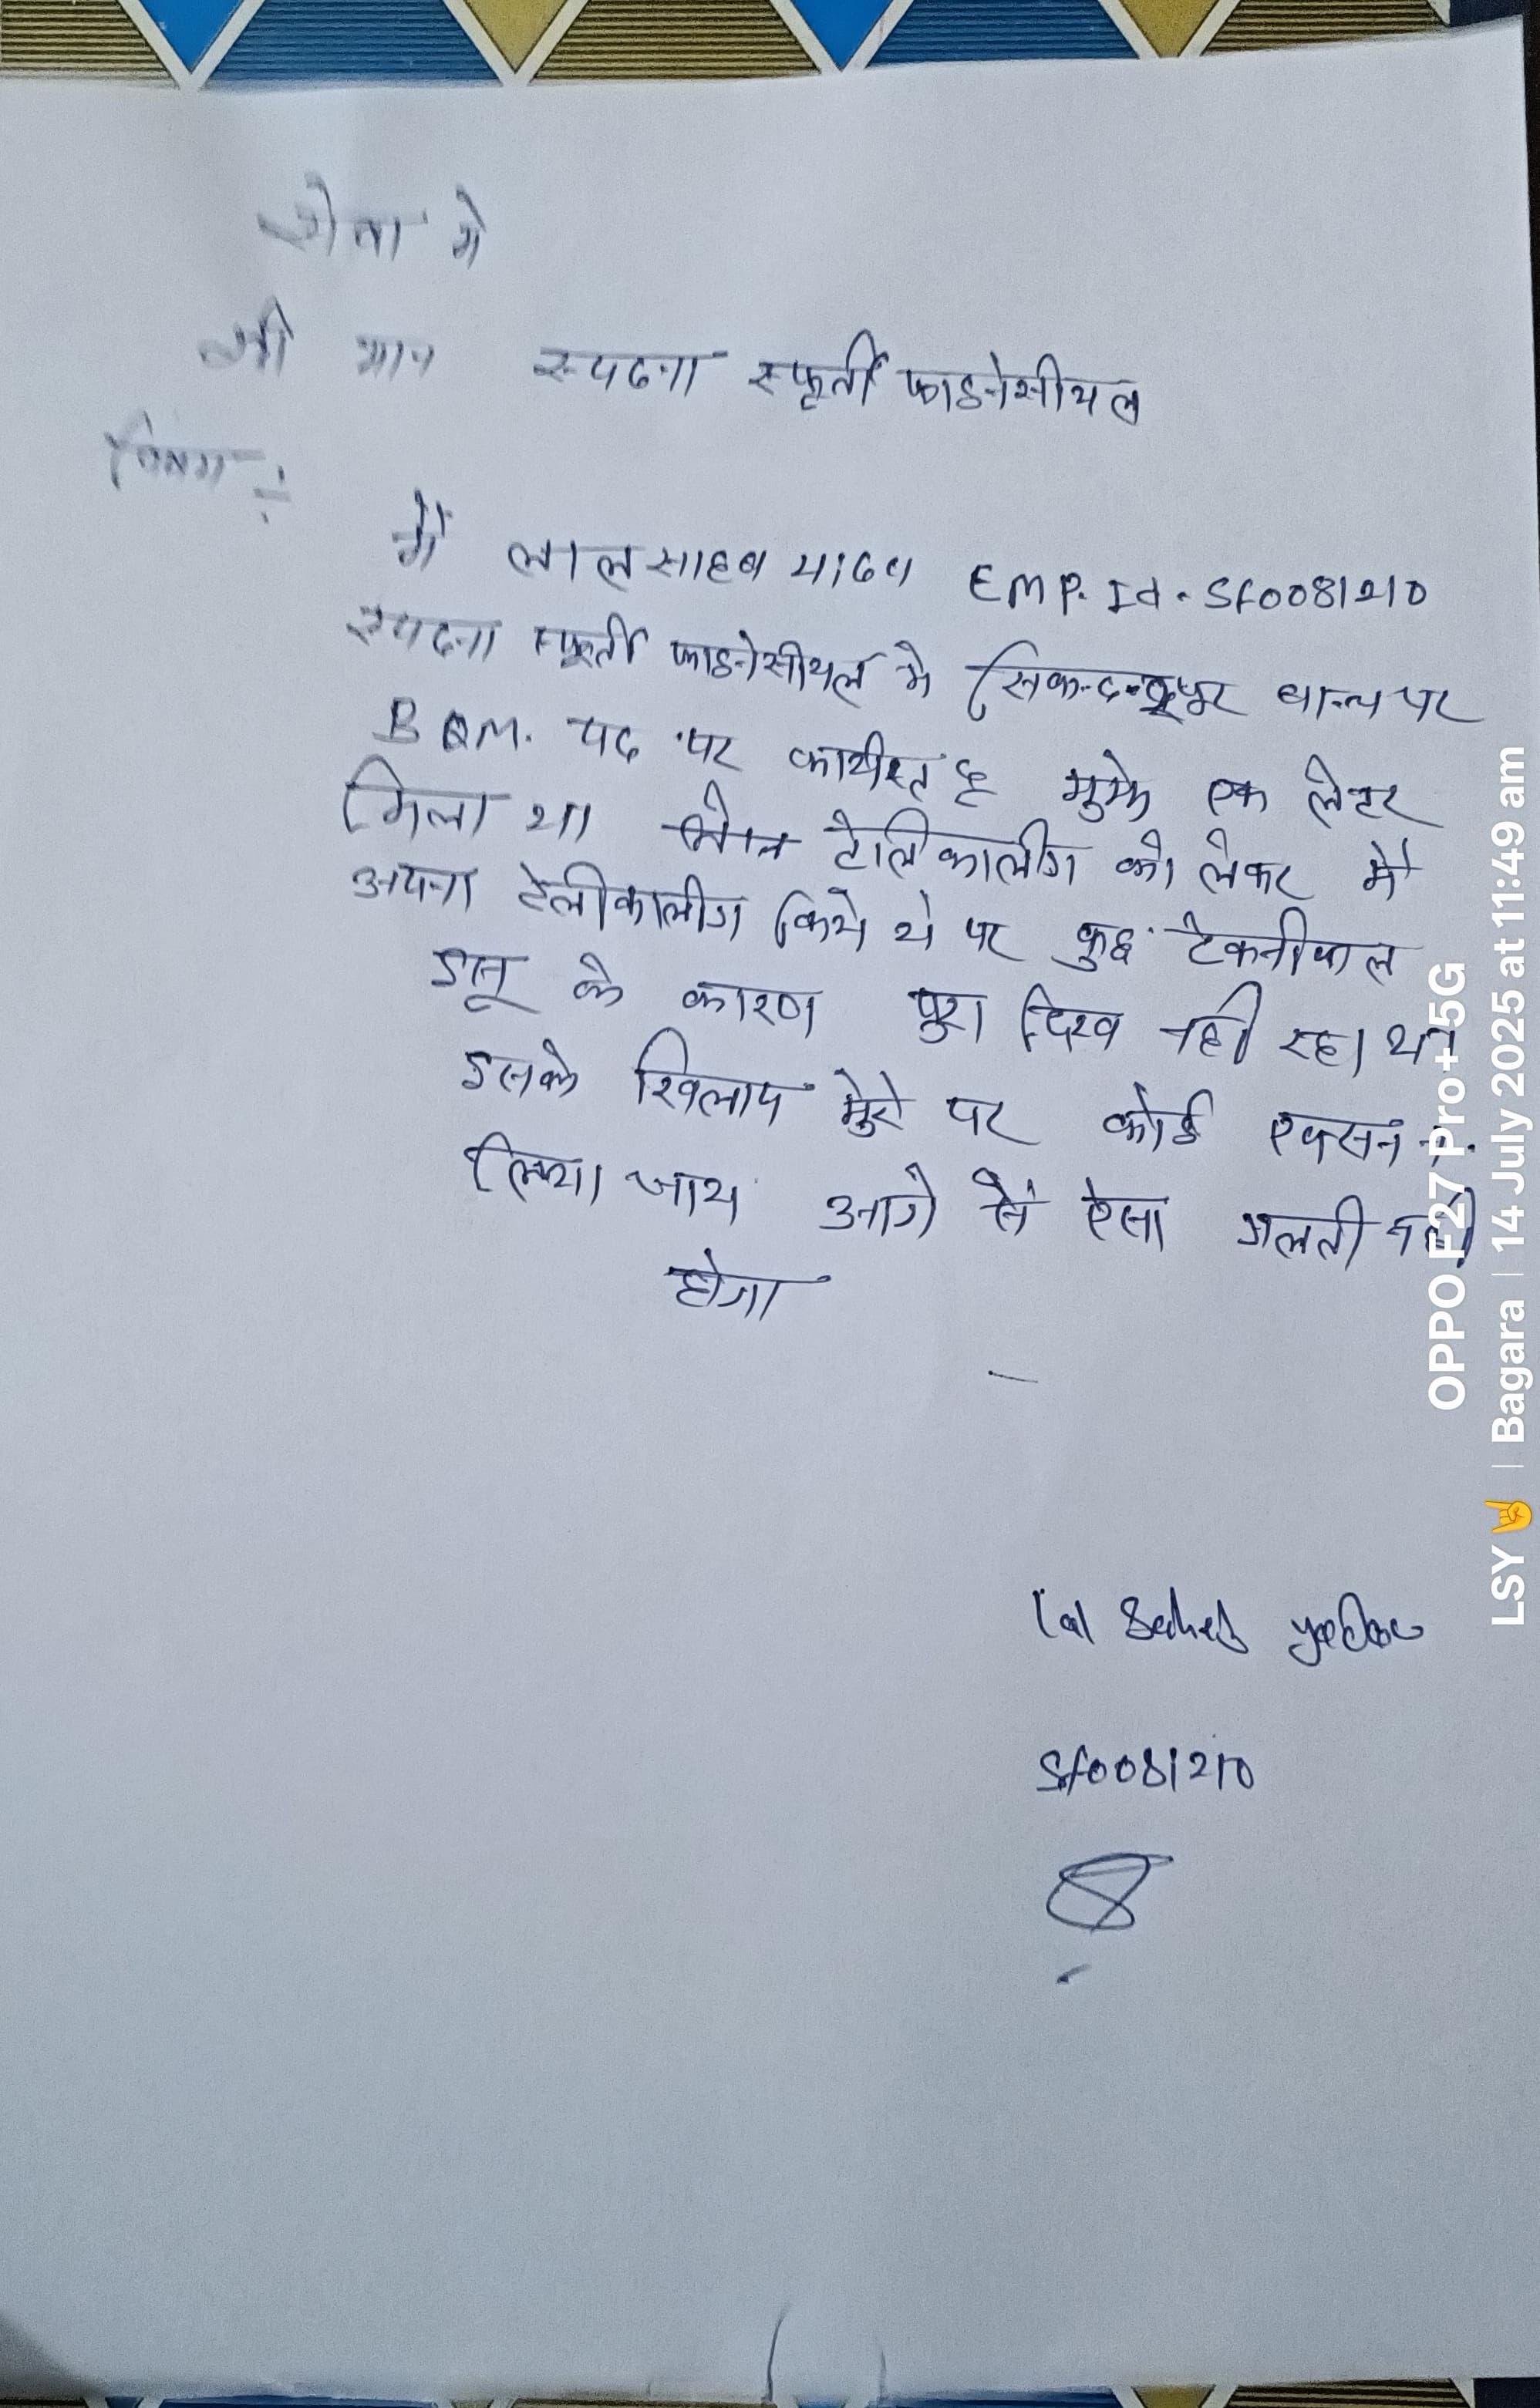 सेवा मे
श्री मान स्पदना स्फूर्ती फाइनेसीयल
विषय :-
मैं लाल साहब यादव EMP. Id. Sf0081210
स्पदना स्फूर्ती फाइनेसीयल मे सिकन्दरपुर ब्रान्च पर
BQM. पद पर कार्यरत हू मुझे एक लेटर
मिला था टेलिकालींग को लेकर मै
अपना टेलीकालींग किये थे पर कुछ टेकनीकल
इसू के कारण पुरा दिख नही रहा था
इसके खिलाप मेरे पर कोई एक्सन न
लिया जाय आगे से ऐसा गलती नही
होगा
Lal Saheb yadav
Sf0081210
OPPO F27 Pro+ 5G
LSY 🤘 | Bagara | 14 July 2025 at 11:49 am